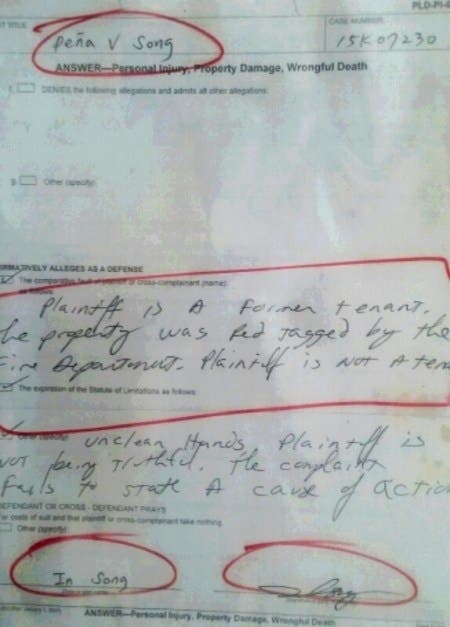 PLD-PI-
T TITLE
CASE NUMBER
Peña V Song
15K07230
ANSWER—Personal Injury, Property Damage, Wrongful Death
DENIES the following allegations and admits all other allegations:
g. Other (specify):
RMATIVELY ALLEGES AS A DEFENSE
The comparative fault of plaintiff or cross-complainant (name):
as follows:
Plaintiff is A former tenant.
he property was Red tagged by the
Fire Department. Plaintiff is Not A tena
The expiration of the Statute of Limitations as follows:
Other (specify):
unclean Hands, Plaintiff is
NOT being Truthful. The complaint
Fails To state A cause of action
DEFENDANT OR CROSS-DEFENDANT PRAYS
For costs of suit and that plaintiff or cross-complainant take nothing.
Other (specify):
In Song
ANSWER—Personal Injury, Property Damage, Wrongful Death